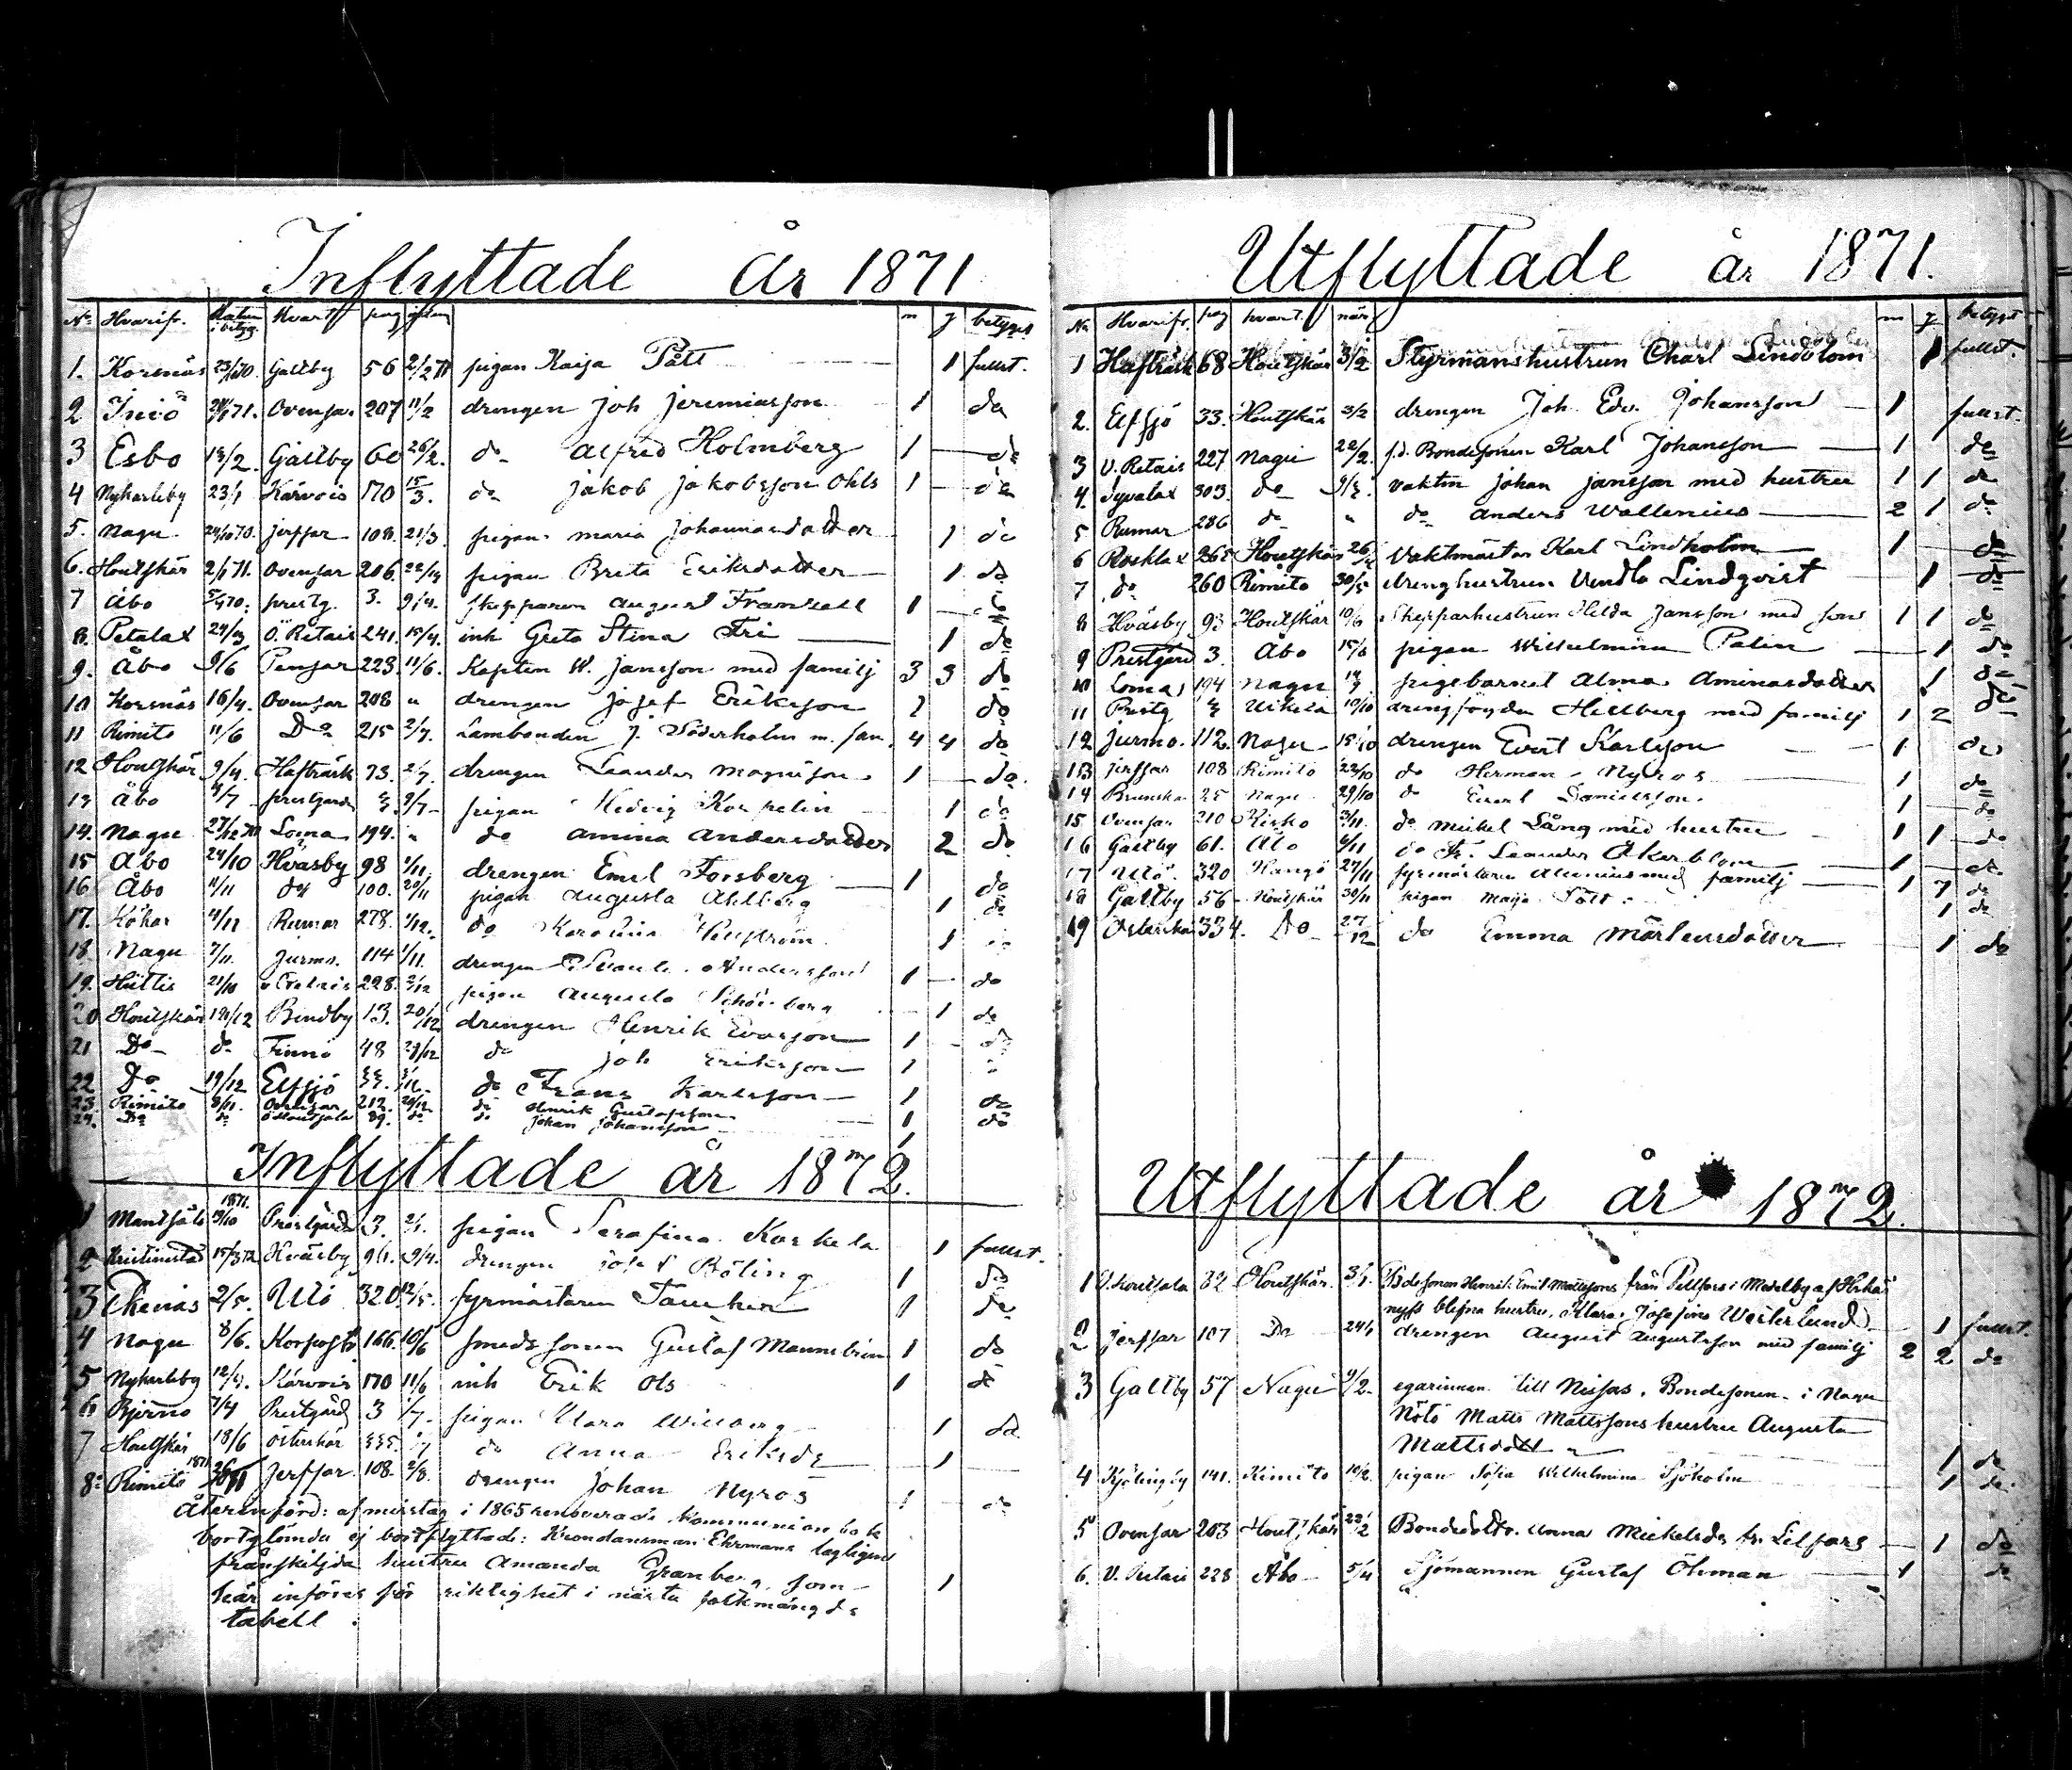 Inflyttade år 1871
No Hvarifr. Datum i betyg. Hvart pag m q betyget
1. Korsnäs Galtby 56 pigan Kaisa Pått 1 fullst.
2 Iniö Ovensar 207 11/2 drengen Joh Jeremiasson 1 do
3 Esbo 13/2. Galtby 60 26/2. do Alfred Holmberg 1 — do
4 Nykarleby 23/1 Kärvois 170 15/3. do Jakob Jakobsson Ohls 1 — do
5. Nagu 24/10 70. Jerfsar 108. 21/3. pigan Maria Johannesdotter 1 do
6. Houtskär 2/1 71. Ovensar 206. pigan Brita Eriksdotter 1 do
7 Åbo prestg. 3. 9/4. skepparen August Framsell 1 —
8. Petalax Ö. Retais 241. 15/4. inh Greta Stina Fri — 1 do
9. Åbo 9/6 Pensar 223. 11/6. Kapten W. Jansson med familj 3 3 do
10 Korsnäs 16/4. Ovensar 208 " drengen Josef Eriksson 1 do
11 Rimito 11/6 Do 215 2/7. Lambonden J. Söderholm m. fam. 4 4 do
12 Houtskär 9/4. Hafträsk 73. 2/7. drengen Leander Magnusson 1 — do.
13 Åbo 4/7 prestgård 3 9/7 pigan Hedvig Korpelin 1 do
14. Nagu Loma 194. " do Amina Andersdotter 2 do
15 Åbo 24/10 Hväsby 98 1/11. drengen Emil Forsberg — 1 do
16 Åbo 11/11 do 100. 20/11 pigan Augusta Ahlberg 1 do
17. Kökar 4/11 Rumar 278. 1/12. do Karolina 1
18 Nagu 7/11. Jurmo. 114 1/11. drengen Andersson 1 — do
19. Hiittis 21/10 228. 2/12 pigan Augusta Schönberg 1 do
20 Houtskär 19/12 Bendby 13. 20/12 drengen Henrik Evasson 1 do
21 Do do Finnö 48 29/12 do Joh Eriksson 1 "
22 Do 19/12 Elfsjö do Frans Karlsson — 1 do
23. Rimito 8/11. Ovensar 212. 20/12 do Henrik Gustafsson
24. Do do 89. do do Johan Johansson 1 do
Inflyttade år 1872.
1 1871. 19/10 Prestgård 3. pigan Serafina Korkela 1 fullst.
2 Kristinestad Hväsby 9/4. drengen Josef Böling 1 do
3 Ekenäs 2/5. Utö 320 12/5. fyrmästaren 1 do
4 Nagu 8/6. 166. 10/6 smedssonen Gustaf Mannström 1 do
5 Nykarleby 12/4. Kärvois 170 11/6 inh Erik Ols 1 do
6 Bjerno 7/4 Prestgård 3 1/7. pigan Klara Willberg 1 do
7 Houtskär 18/6 Österskär 335. do Anna Eriksdr 1
8. Rimito 1871 Jerfsar 108. 2/8. drengen Johan Nyros 1 do
Återinförd: af misstag i 1865 renoverade kommunion bok
bortglömda ej bortflyttade: Krondansman Ehrmans lagligen
frånskiljda hustru Amanda Granberg, som — 1
här införes för riktighet i nästa folkmängds
tabell.
Utflyttade år 1871.
No Hvarifr. pag hvart. när m q betyget
1 Hafträsk 68 Houtskär 3/2 Styrmanshustrun Charl Lindblom 1 fullst.
2. Elfsjö 33. Houtskär 3/2 drengen Joh. Edv. Johansson — 1 fullst.
3 V. Retais 227 Nagu 22/2. f.d. Bondesonen Karl Johansson — 1 do
4. Syvalax 303. do vaktm Johan Jansson med hustru 1 1 do
5 Rumar 286 do " do Anders Wallenius — 2 1 do
6 Rosklax 265 Houtskär Vaktmästar Karl Lindholm — 1 do
7 do 260 Rimito 30/5 drenghustrun Vendla Lindqvist 1 do
8 Hväsby 93 Houtskär 10/6 Skepparhustrun Hilda Jansson med son 1 1 do
9 Prestgård 3. Åbo 15/6 pigan Wilhelmina Palin — 1 do
10 Loma 194 Nagu pigebarnet Alma Aminasdotter 1 do
11 Prestg drengfogden Hellberg med familj 1 2 do
12 Jurmo. 112 Nagu 15/10 drengen Evert Karlsson — 1 do
13 Jerfsar 108 Rimito 22/10 do Herman Nyros — 1 do
14 Brunskär 25 Nagu 29/10 do Danielsson. 1 — do
15 Ovensar 210 Kisko 3/11. do Mickel Lång med hustru 1 1 do
16 Galtby 61. Åbo 6/11 do Fr. Leander Åkerblom — 1 — do
17 Utö 320 Hangö 27/11 fyrmästaren med familj — 1 7 do
18 Galtby 56 Houtskär 30/11 pigan Maija Pått. 1 do
19 Österskär 334. Do 27/12 do Emma Mårtensdotter — 1 do
Utflyttade år 1872.
1 82 Houtskär 3/1. Bdesonen Henrik Emil Mattssons från Pellfors i Medelby af Hskär
nyss blefna hustru, Klara Josefina Westerlund — 1 fullst.
2 Jerfsar 107 Do 24/1 drengen August Augustsson med familj 2 2 do
3 Galtby 57 Nagu 9/2. egarinnan till Nissas, Bondesonen i Nagu
Nötö Matts Mattssons hustru Augusta
Mattsdott — 1 do
4 Kjölingby 141. Kimito 10/2. pigan Sofia Wilhelmina Sjöholm 1 do.
5 Ovensar 203 Houtskär 22/2 Bondedottr. Anna Mickelsdr fr. Lilfors — 1 do
6. V. Retais 228 Åbo 5/4 Sjömannen Gustaf Öhman — 1 do